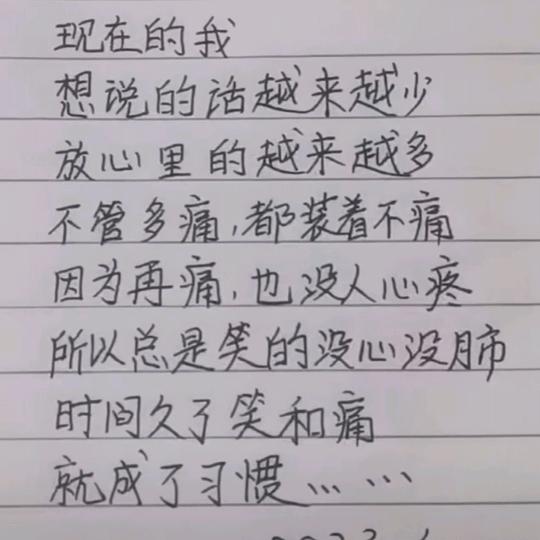 现在的我
想说的话越来越少
放心里的越来越多
不管多痛,都装着不痛
因为再痛,也没人心疼
所以总是笑的没心没肺
时间久了笑和痛
就成了习惯……